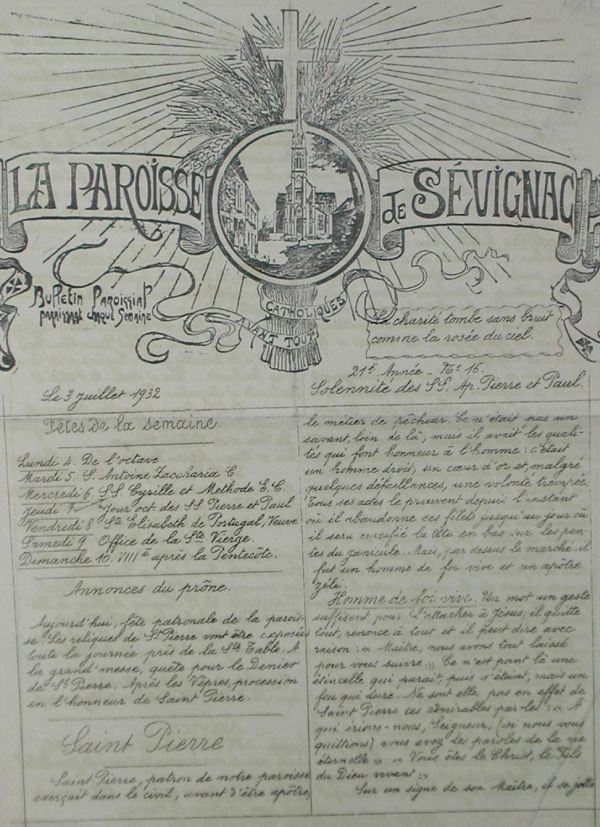 LA PAROISSE de SÉVIGNAC
Bulletin Paroissial
paraissant chaque Semaine
CATHOLIQUES
AVANT TOUT
La charité tombe sans bruit
comme la rosée du ciel.
21e Année - No 16.
Solennité des SS. Ap. Pierre et Paul.
Le 3 Juillet 1932
Fêtes de la semaine.
Lundi 4. De l'octave
Mardi 5. S. Antoine Zaccharia C.
Mercredi 6. SS Cyrille et Méthode E.C.
Jeudi 7 Jour oct. des SS Pierre et Paul
Vendredi 8 Ste Elisabeth de Portugal, Veuve
Samedi 9 Office de la Ste Vierge.
Dimanche 10. VIIIe après la Pentecôte.
Annonces du prône.
Aujourd'hui, fête patronale de la parois-
se. Les reliques de St Pierre vont être exposées
toute la journée près de la Ste Table. A
la grand'messe, quête pour le Denier
de St Pierre. Après les Vêpres, procession
en l'honneur de Saint Pierre.
Saint Pierre
Saint Pierre, patron de notre paroisse
exerçait dans le civil, avant d'être apôtre,
le métier de pêcheur. Ce n'était pas un
savant, loin de là, mais il avait les quali-
tés qui font honneur à l'homme: c'était
un homme droit, un cœur d'or et, malgré
quelques défaillances, une volonté trempée.
Tous ses actes le prouvent depuis l'instant
où il abandonne ses filets jusqu'au jour où
il sera crucifié la tête en bas sur les pen-
tes du Janicule. Mais, par dessus le marché, il
fut un homme de foi vive et un apôtre
zélé.
Homme de foi vive. Un mot un geste
suffisent pour l'attacher à Jésus; il quitte
tout, renonce à tout et il peut dire avec
raison: « Maître, nous avons tout laissé
pour vous suivre. » Ce n'est point là une
étincelle qui paraît, puis s'éteint, mais un
feu qui dure. Ne sont elle pas en effet de
Saint Pierre ces admirables paroles: « A
qui irions-nous, Seigneur, (si nous vous
quittions) vous avez les paroles de la vie
éternelle » « Vous êtes le Christ, le Fils
du Dieu vivant »
Sur un signe de son Maître, il se jette